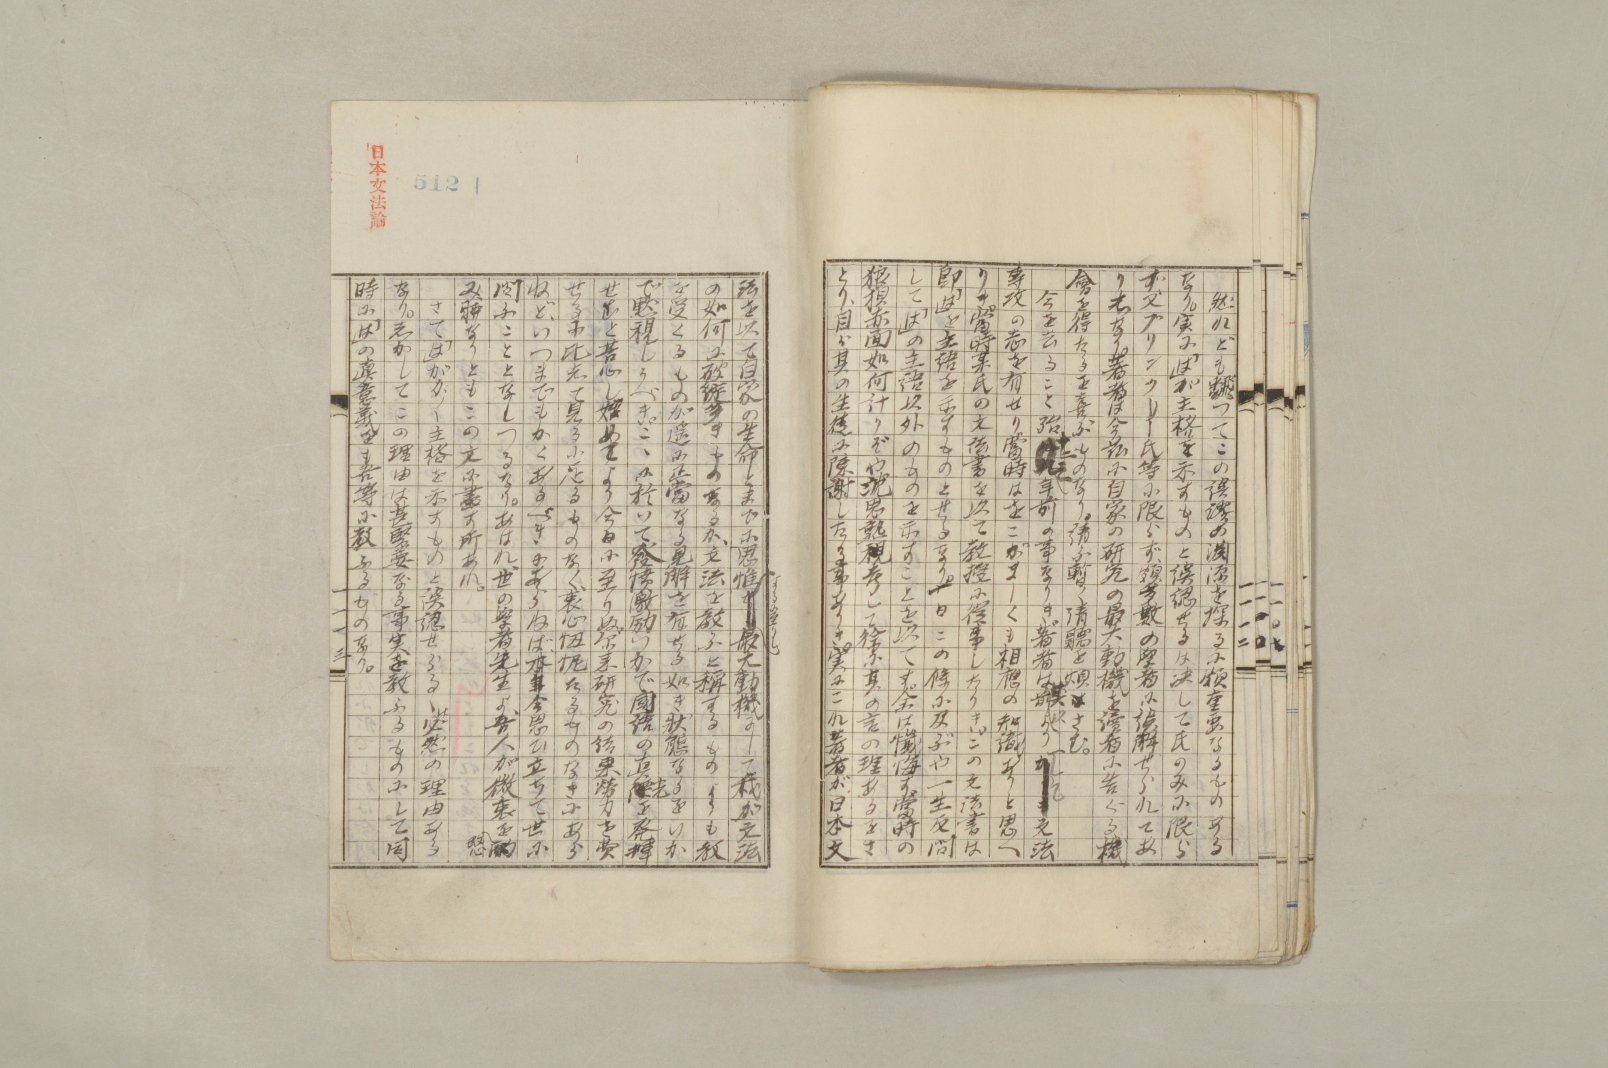 然れども翻つてこの誤謬の淵源を探るに頗重要なるものある
なり。実に「は」が主格を示すものと誤認せるは決して氏のみに限ら
ず又ブリンクリー氏等に限らず頗多数の学者に誤解せられてあ
りしなり。著者は今茲に自家の研究の最大動機を読者に告ぐる機
會を得たるを喜ぶものなり。請ふ暫く清聴を煩はさむ。
今を去ること殆十二三年前の事なりき。著者は
専攻の志を有せり當時はをこがましくも相應の知識ありと思へ
りき。當時某氏の文法書を以て教授に従事したりき。この文法書は
即「は」を主語を示すものとせるなり。一日この條に及ぶや一生反問
して「は」の主語以外のものを示すことを以てす。余は懺悔す。當時の
狼狽赤面如何計りぞや沈思熟視考して徐に其の言の理あるをさ
とり、自ら其の生徒に陳謝したる事ありき。実にこれ著者が日本文
法を以て自家の生命とまでに思惟する最大動機にして我が文法
の如何に破綻多きものなるか、文法を教ふと称するものよりも教
を受くるものが遥に正當なる見解を有せる如き状態なるをいか
で黙視しうべき。ここに於いて発憤激励いかで国語の真を発揮
せむと苦心し始めてより今日に至りぬ。爾来研究の結果労力を費
せる所比して見るに足るものなく衷心忸怩たるものなきにあら
ねど、いつまでもかくあるべきにあらねば今思ひ立ちて世に
問ふこととなしつるなり。あはれ世の学者先生よ、吾人が微衷を酌
み駢なりともこの文に盡す所あれ。
さて「は」がかく主格を示すものと誤認せらるるは必然の理由ある
なり。しかしてこの理由は甚緊要なる事実を教ふるものにして同
時に「は」の真意義を吾等に教ふるものなり。
日本文法論
512
一一二
一一三